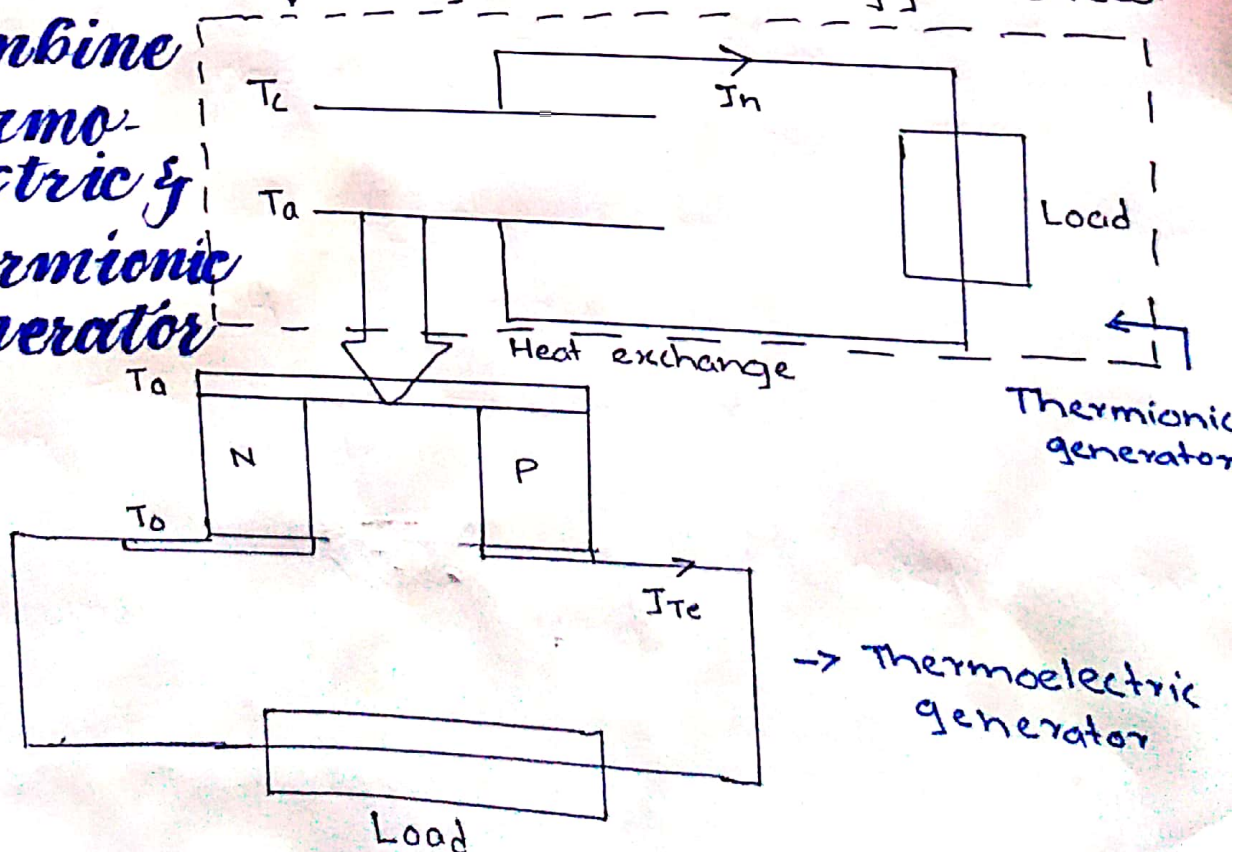 mbine
rmo-
ctric &
rmionic
nerator
Tc
Jn
Ta
Load
Heat exchange
Thermionic
generator
Ta
N
P
To
JTe
-> Thermoelectric
generator
Load